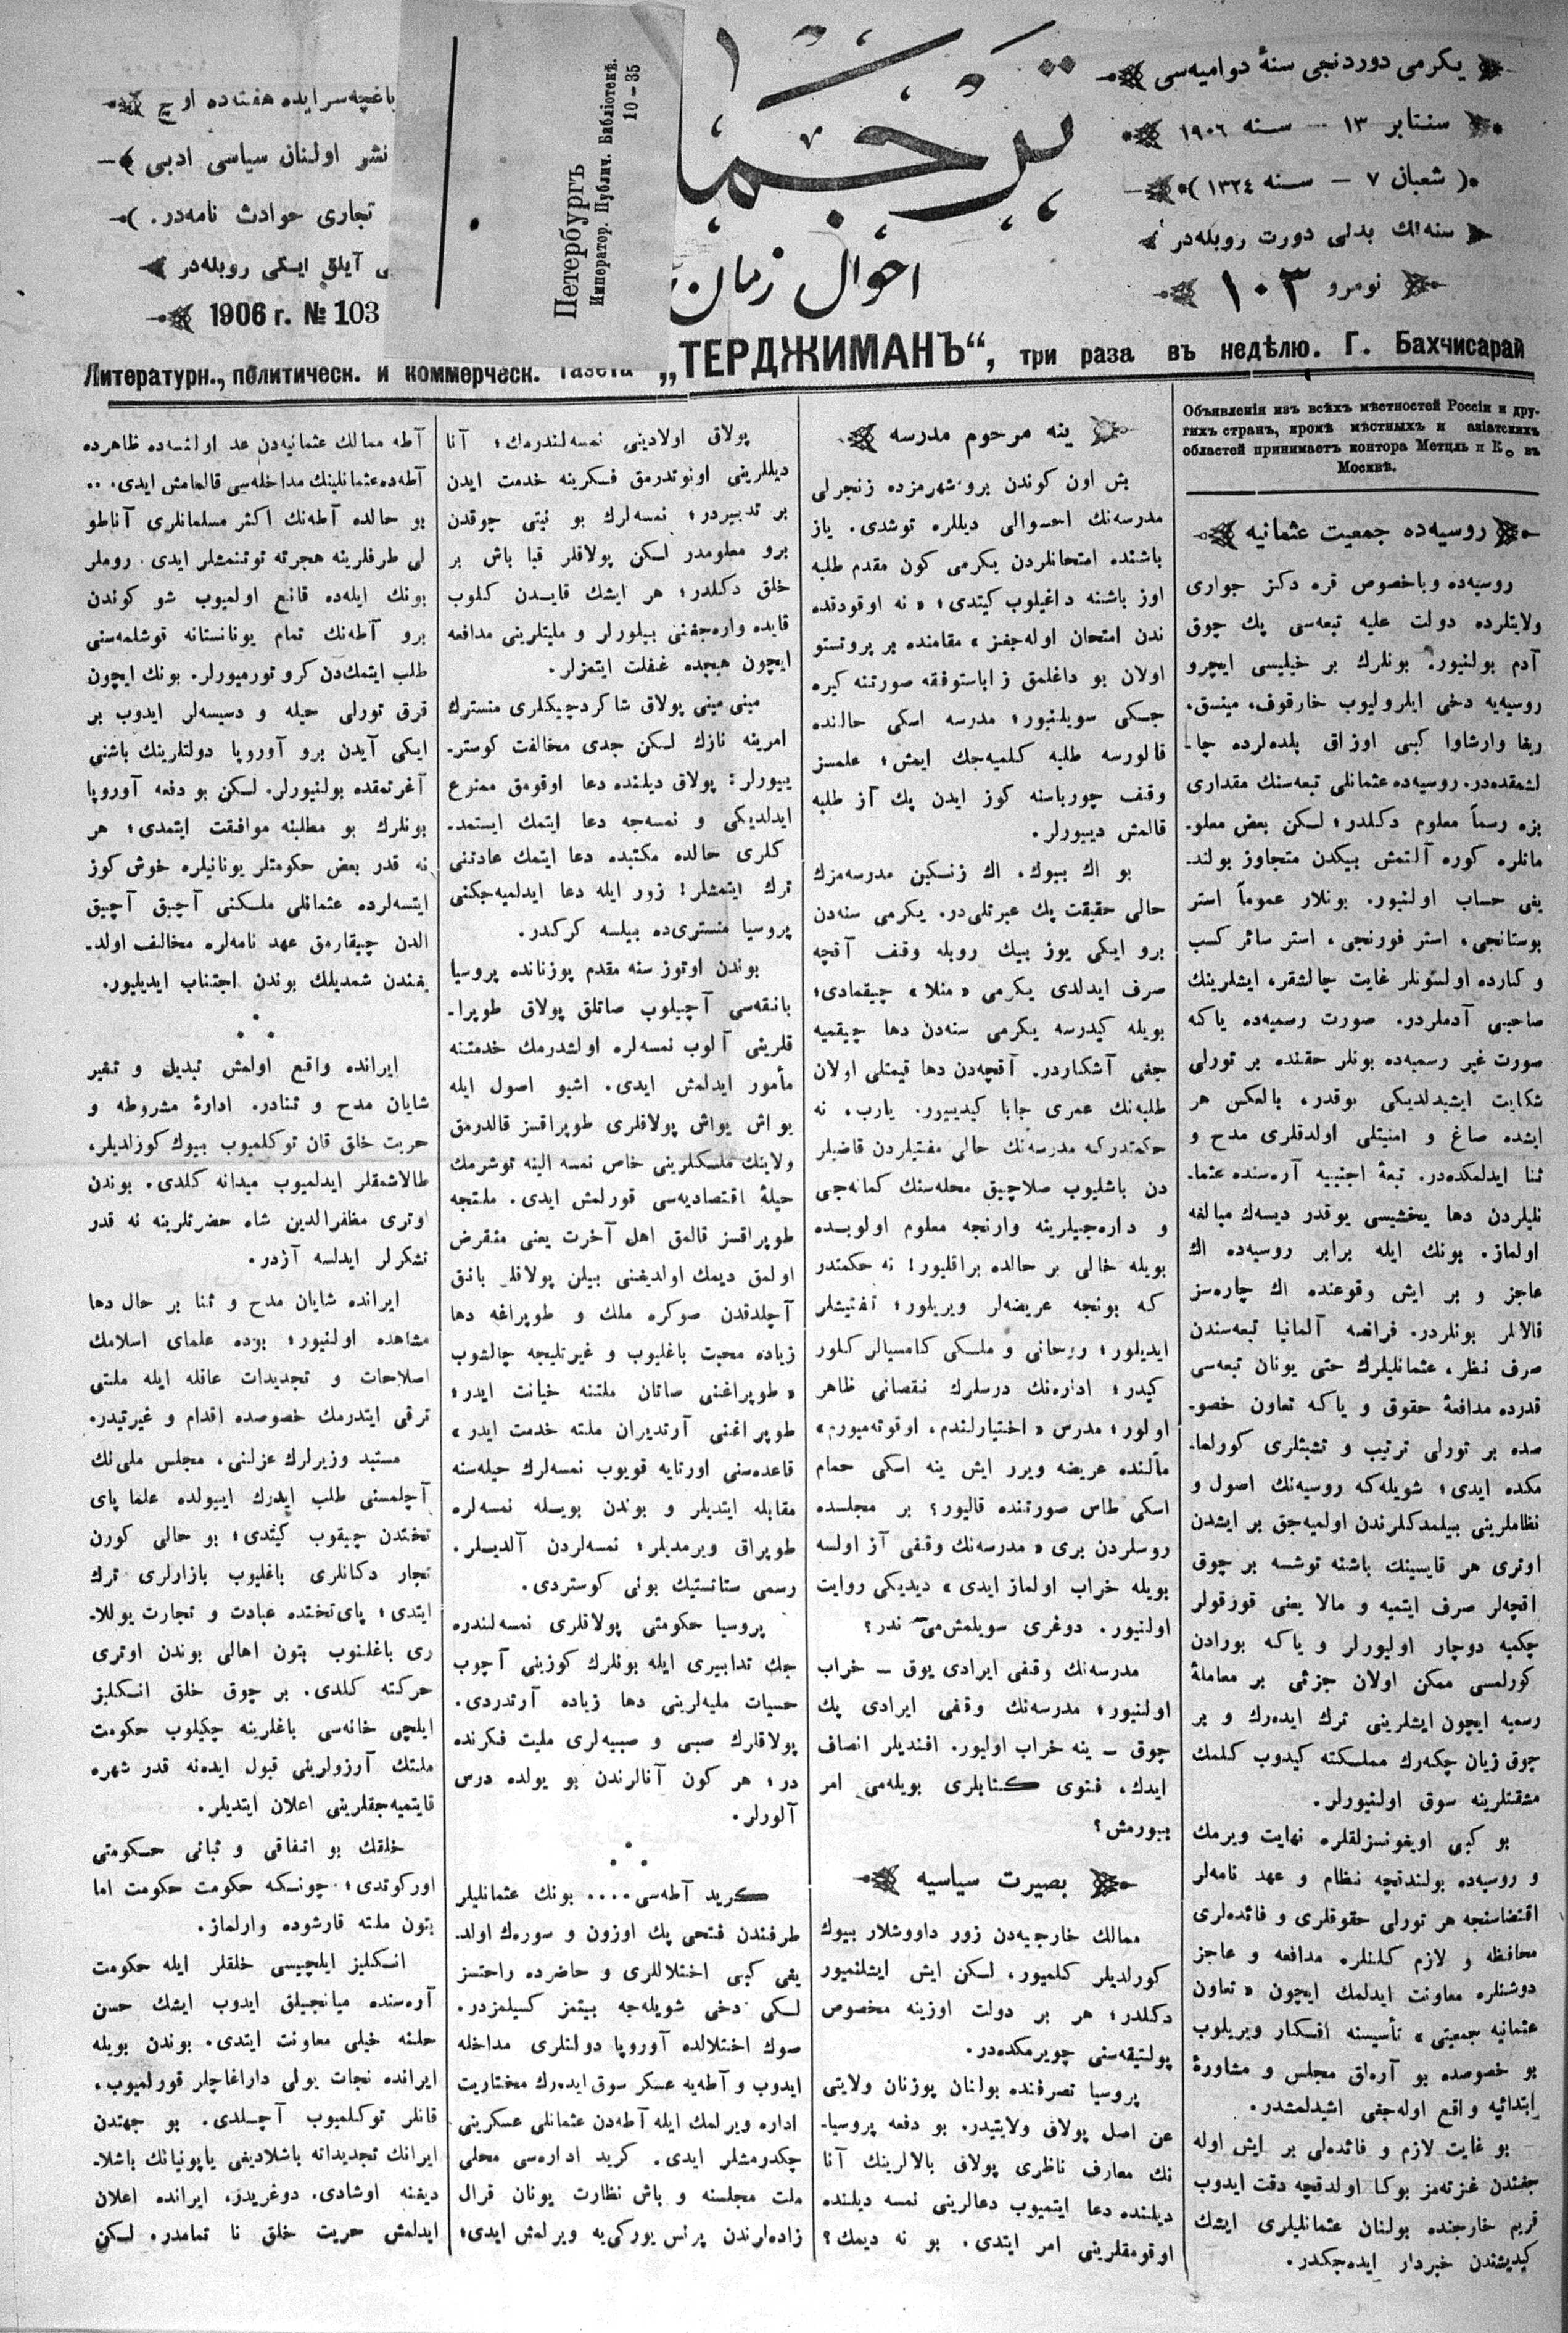 يكرمى دوردنجى سنۀ دواميه‌سى
سنتابر ١٣ — سنه ١٩٠٦
شعبان ٧ — سنه ١٣٢٤
سنه‌لك بدلى دورت روبله‌در
نومرو ١٠٣
ترجما
احوال زمان
Петербургъ
Император. Публич. Библіотекѣ.
10–35
باغچه‌سرايده هفته‌ده اوچ
نشر اولنان سياسى ادبى
تجارى حوادث نامه‌در.
آيلق ايكى روبله‌در
1906 г. № 103
Литературн., политическ. и коммерческ. газета „ТЕРДЖИМАНЪ“, три раза въ недѣлю. Г. Бахчисарай
Объявленія изъ всѣхъ мѣстностей Россіи и дру-
гихъ странъ, кромѣ мѣстныхъ и азіатскихъ
областей принимаетъ контора Метцль и Ко въ
Москвѣ.
روسيه‌ده جمعيت عثمانيه
روسيه‌ده وباخصوص قره دكز جوارى
ولايتلرده دولت عليه تبعه‌سى پك چوق
آدم بولنيور. بونلرك بر خيليسى ايچرو
روسيه‌يه دخى ايلروليوب خارقوف، مينسق،
ريغا وارشاوا كبى اوزاق بلده‌لرده چا-
لشمقده‌در. روسيه‌ده عثمانلى تبعه‌سنك مقدارى
بزه رسماً معلوم دكلدر؛ لكن بعض معلو-
ماتلره كوره آلتمش بيكدن متجاوز بولند-
يغى حساب اولنيور. بونلار عموماً استر
بوستانجى، استر فورنجى، استر سائر كسب
و كارده اولسونلر غايت چالشقر، ايشلرينك
صاحبى آدملردر. صورت رسميه‌ده ياكه
صورت غير رسميه‌ده بونلر حقنده بر تورلى
شكايت ايشيدلديكى يوقدر، بالعكس هر
ايشده صاغ و امنيتلى اولدقلرى مدح و
ثنا ايدلمكده‌در. تبعۀ اجنبيه آره‌سنده عثما-
نليلردن دها يخشيسى يوقدر ديسه‌ك مبالغه
اولماز. بونك ايله برابر روسيه‌ده اك
عاجز و بر ايش وقوعنده اك چاره‌سز
قالالر بونلردر. فرانسه آلمانيا تبعه‌سندن
صرف نظر، عثمانليلرك حتى يونان تبعه‌سى
قدرده مدافعۀ حقوق و ياكه تعاون خصو-
صده بر تورلى ترتيب و تشبثلرى كورلما-
مكده ايدى؛ شويله‌كه روسيه‌نك اصول و
نظاملرينى بيلمدكلرندن اولميه‌جق بر ايشدن
اوترى هر قايسينك باشنه توشسه بر چوق
اقچه‌لر صرف ايتميه و مالا يعنى قوزقولر
چكميه دوچار اوليورلر و ياكه بورادن
كورلمسى ممكن اولان جزئى بر معاملۀ
رسميه ايچون ايشلرينى ترك ايده‌رك و بر
چوق زيان چكه‌رك مملكته كيدوب كلمك
مشقتلرينه سوق اولنيورلر.
بو كبى اويغونسزلقلره نهايت ويرمك
و روسيه‌ده بولندقجه نظام و عهد نامه‌لر
اقتضاسنجه هر تورلى حقوقلرى و فائده‌لرى
محافظه و لازم كلنلره مدافعه و عاجز
دوشنلره معاونت ايدلمك ايچون « تعاون
عثمانيه جمعيتى » تأسيسنه افكار ويريلوب
بو خصوصده بو آره‌لق مجلس و مشاورۀ
ابتدائيه واقع اوله‌جغى اشيدلمشدر.
بو غايت لازم و فائده‌لى بر ايش اوله
جغندن غزته‌مز بوكا اولدقجه دقت ايدوب
قريم خارجنده بولنان عثمانليلرى ايشك
كيديشندن خبردار ايده‌جكدر.
ينه مرحوم مدرسه
بش اون كوندن برو شهرمزده زنجرلى
مدرسه‌نك احوالى ديللره توشدى. ياز
باشنده امتحانلردن يكرمى كون مقدم طلبه
اوز باشنه داغيلوب كيتدى؛ « نه اوقودقده
ندن امتحان اوله‌جغز » مقامنده بر پروتستو
اولان بو داغلمق زاباستوفقه صورتنه كيره
جكى سويلنيور؛ مدرسه اسكى حالنده
قالورسه طلبه كلميه‌جك ايمش؛ علمسز
وقف چورباسنه كوز ايدن پك آز طلبه
قالمش ديبورلر.
بو اك بيوك، اك زنكين مدرسه‌مزك
حالى حقيقت پك عبرتلى‌در. يكرمى سنه‌دن
برو ايكى يوز بيك روبله وقف آقچه
صرف ايدلدى يكرمى « منلا » چيقمادى؛
بويله كيدرسه يكرمى سنه‌دن دها چيقميه
جغى آشكاردر. آقچه‌دن دها قيمتلى اولان
طلبه‌نك عمرى جابا كيدييور. يارب، نه
حكمتدركه مدرسه‌نك حالى مفتيلردن قاضيلر
دن باشليوب صلاچيق محله‌سنك كمانه‌جى
و داره‌جيلرينه وارنجه معلوم اولوبده
بويله خالى بر حالده براقليور! نه حكمتدر
كه بونجه عريضه‌لر ويريلور؛ تفتيشلر
ايديلور؛ روحانى و ملكى كامسيالر كلور
كيدر؛ اداره‌نك درسلرك نقصانى ظاهر
اولور؛ مدرس « اختيارلندم، اوقوته‌ميورم»
مآلنده عريضه ويرر ايش ينه اسكى حمام
اسكى طاس صورتنده قاليور؟ بر مجلسده
روسلردن برى « مدرسه‌نك وقفى آز اولسه
بويله خراب اولماز ايدى » ديديكى روايت
اولنيور. دوغرى سويلمش‌مى ندر؟
مدرسه‌نك وقفى ايرادى يوق — خراب
اولنيور؛ مدرسه‌نك وقفى ايرادى پك
چوق — ينه خراب اوليور. افنديلر انصاف
ايدك، فتوى كتابلرى بويله‌مى امر
بيورمش؟
بصيرت سياسيه
ممالك خارجيه‌دن زور داووشلار بيوك
كورلديلر كلميور، لكن ايش ايشلنميور
دكلدر؛ هر بر دولت اوزينه مخصوص
پولتيقه‌سنى چويرمكده‌در.
پروسيا تصرفنده بولنان پوزنان ولايتى
عن اصل پولاق ولايتيدر. بو دفعه پروسيا-
نك معارف ناظرى پولاق بالالرينك آنا
ديلنده دعا ايتميوب دعالرينى نمسه ديلنده
اوقومقلرينى امر ايتدى. بو نه ديمك؟
پولاق اولادينى نمسه‌لندرمك؛ آنا
ديللرينى اونوتدرمق فكرينه خدمت ايدن
بر تدبيردر؛ نمسه‌لرك بو نيتى چوقدن
برو معلومدر لكن پولاقلر قبا باش بر
خلق دكلدر؛ هر ايشك قايدن كلوب
قايده واره‌جغنى بيلورلر و مليتلرينى مدافعه
ايچون هيچده غفلت ايتمزلر.
مينى مينى پولاق شاكردچيكلرى منسترك
امرينه نازك لكن جدى مخالفت كوستر-
يبورلر: پولاق ديلنده دعا اوقومق ممنوع
ايدلديكى و نمسه‌جه دعا ايتمك ايستمد-
كلرى حالده مكتبده دعا ايتمك عادتنى
ترك ايتمشلر! زور ايله دعا ايدلميه‌جكنى
پروسيا منسترى‌ده بيلسه كركدر.
بوندن اوتوز سنه مقدم پوزنانده پروسيا
بانقه‌سى آچيلوب صاتلق پولاق طوپرا-
قلرينى آلوب نمسه‌لره اولشدرمك خدمتنه
مأمور ايدلمش ايدى. اشبو اصول ايله
يواش يواش پولاقلرى طوپراقسز قالدرمق
ولاينك ملكلرينى خاص نمسه الينه توشرمك
حيلۀ اقتصاديه‌سى قورلمش ايدى. ملتجه
طوپراقسز قالمق اهل آخرت يعنى منقرض
اولمق ديمك اولديغنى بيلن پولاقلر بانق
آچلدقدن صوكره ملك و طوپراغه دها
زياده محبت باغليوب و غيرتليجه چالشوب
« طوپراغنى صاتان ملتنه خيانت ايدر؛
طوپراغنى آرتديران ملته خدمت ايدر »
قاعده‌سنى اورتايه قويوب نمسه‌لرك حيله‌سنه
مقابله ايتديلر و بوندن بويله نمسه‌لره
طوپراق ويرمديلر؛ نمسه‌لردن آلديلر.
رسمى ستاتستيك بونى كوستردى.
پروسيا حكومتى پولاقلرى نمسه‌لندره
جك تدابيرى ايله بونلرك كوزينى آچوب
حسيات مليه‌لرينى دها زياده آرتدردى.
پولاقلرك صبى و صبيه‌لرى مليت فكرنده
در؛ هر كون آنالرندن بو يولده درس
آلورلر.
كريد آطه‌سى.... بونك عثمانليلر
طرفندن فتحى پك اوزون و سوره‌ك اولد-
يغى كبى اختلاللرى و حاضرده راحتسز
لكى دخى شويله‌جه بيتمز كسيلمزدر.
صوك اختلالده آوروپا دولتلرى مداخله
ايدوب و آطه‌يه عسكر سوق ايده‌رك مختاريت
اداره ويرلمك ايله آطه‌دن عثمانلى عسكرينى
چكدرمشلر ايدى. كريد اداره‌سى محلى
ملت مجلسنه و باش نظارت يونان قرال
زاده‌لرندن پرنس يوركى‌يه ويرلمش ايدى؛
آطه ممالك عثمانيه‌دن عد اولنسه‌ده ظاهرده
آطه‌ده عثمانلينك مداخله‌سى قالمامش ايدى...
بو حالده آطه‌نك اكثر مسلمانلرى آناطو
لى طرفلرينه هجرته توتنمشلر ايدى. روملر
بونك ايله‌ده قانع اولميوب شو كوندن
برو آطه‌نك تمام يونانستانه قوشلمه‌سنى
طلب ايتمك‌دن كرو تورميورلر. بونك ايچون
قرق تورلى حيله و دسيسه‌لر ايدوب بر
ايكى آيدن برو آوروپا دولتلرينك باشنى
آغرتمقده بولنيورلر. لكن بو دفعه آوروپا
بونلرك بو مطلبنه موافقت ايتمدى؛ هر
نه قدر بعض حكومتلر يونانيلره خوش كوز
ايتسه‌لرده عثمانلى ملكنى آچيق آچيق
الدن چيقارمق عهد نامه‌لره مخالف اولد-
يغندن شمديلك بوندن اجتناب ايديليور.
ايرانده واقع اولمش تبديل و تغير
شايان مدح و ثنادر. ادارۀ مشروطه و
حريت خلق قان توكلميوب بيوك كوزلديلر،
طالاشمقلر ايدلميوب ميدانه كلدى. بوندن
اوترى مظفرالدين شاه حضرتلرينه نه قدر
تشكرلر ايدلسه آزدر.
ايرانده شايان مدح و ثنا بر حال دها
مشاهده اولنيور؛ بوده علماى اسلامك
اصلاحات و تجديدات عاقله ايله ملتى
ترقى ايتدرمك خصوصده اقدام و غيرتيدر.
مستبد وزيرلرك عزلنى، مجلس ملى‌نك
آچلمسنى طلب ايدرك ايبولده علما پاى
تختدن چيقوب كيتدى؛ بو حالى كورن
تجار دكانلرى باغليوب بازارلرى ترك
ايتدى؛ پاى‌تختده عبادت و تجارت يوللا-
رى باغلنوب بتون اهالى بوندن اوترى
حركته كلدى. بر چوق خلق انكليز
ايلچى خانه‌سى باغلرينه چكيلوب حكومت
ملتك آرزولرينى قبول ايده‌نه قدر شهره
قايتميه‌جقلرينى اعلان ايتديلر.
خلقك بو اتفاقى و ثباتى حكومتى
اوركوتدى؛ چونكه حكومت حكومت اما
بتون ملته قارشوده وارلماز.
انكليز ايلچيسى خلقلر ايله حكومت
آره‌سنده ميانجيلق ايدوب ايشك حسن
حلنه خيلى معاونت ايتدى. بوندن بويله
ايرانده نجات يولى داراغاچلر قورلميوب،
قانلر توكلميوب آچلدى. بو جهتدن
ايرانك تجديداته باشلاديغى ياپونيانك باشلا-
ديغنه اوشادى. دوغريدر، ايرانده اعلان
ايدلمش حريت خلق نا تمامدر، لكن